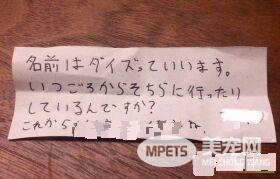 名前はダイズっていいます。
いつごろからそちらに行ったり
しているんですか?
これから
MPETS
美宠网
MEICHONG WANG